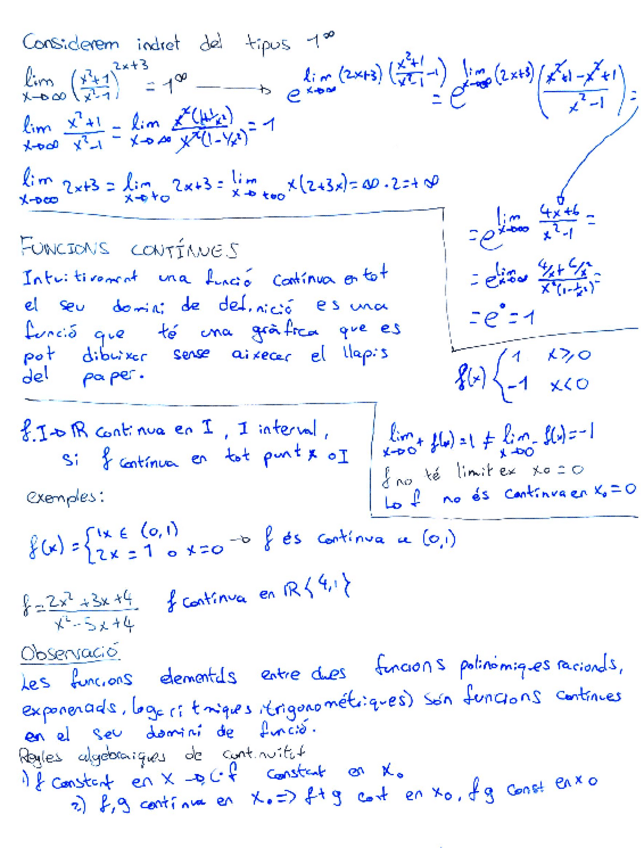 Considerem indret del tipus 1^∞
lim x→∞ ((x²+1)/(x²-1))^(2x+3) = 1^∞ → e^(lim x→∞ (2x+3)((x²+1)/(x²-1) -1)) = e^(lim x→∞ (2x+3)((x²+1-x²+1)/(x²-1))) =
lim x→∞ (x²+1)/(x²-1) = lim x→∞ x²(1+1/x²)/x²(1-1/x²) = 1
lim x→∞ 2x+3 = lim x→+∞ 2x+3 = lim x→+∞ x(2+3x) = ∞·2 = +∞
= e^(lim x→∞ (4x+6)/(x²-1)) =
= e^(lim x→∞ (4/x+6/x²)/(x²(1-1/x²))) =
= e^0 = 1
FUNCIONS CONTÍNUES
Intuitivament una funció contínua en tot
el seu domini de definició es una
funció que té una gràfica que es
pot dibuixar sense aixecar el llapis
del paper.
f(x) { 1 x≥0
-1 x<0
lim x→0+ f(x)=1 ≠ lim x→0- f(x)=-1
f no té limit ex x₀=0
Lo f no és contínua en x₀=0
f. I→ℝ contínua en I, I interval,
si f contínua en tot punt x oI
exemples:
f(x) = { 1x ∈ (0,1)
2x = 1 o x=0 → f és contínua a (0,1)
f = (2x²+3x+4)/(x²-5x+4) f contínua en ℝ{4,1}
Observació
Les funcions elementals entre dues funcions polinòmiques racionals,
exponencials, logarítmiques, trigonométriques) són funcions contínues
en el seu domini de funció.
Regles algebraiques de continuïtat
1) f constant en x → c·f constant en x₀
2) f, g contínua en x₀ => f+g cont en x₀, f g const en x0